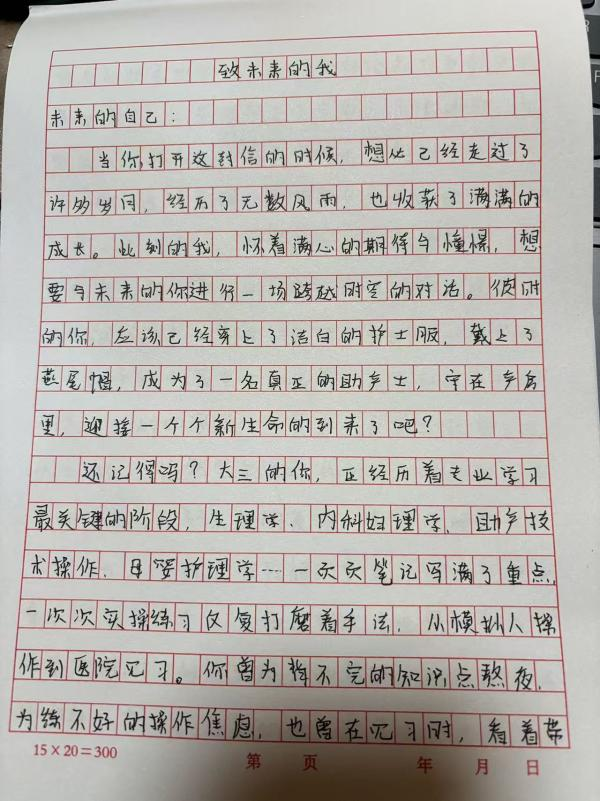 致未来的我
未来的自己：
当你打开这封信的时候，想必已经走过了
许多岁月，经历了无数风雨，也收获了满满的
成长。此刻的我，怀着满心的期待与憧憬，想
要与未来的你进行一场跨越时空的对话。彼时
的你，应该已经穿上了洁白的护士服，戴上了
燕尾帽，成为了一名真正的助产士，守在产房
里，迎接一个个新生命的到来了吧？
还记得吗？大三的你，正经历着专业学习
最关键的阶段，生理学、内科妇理学、助产技
术操作、母婴护理学……一次次笔记写满了重点，
一次次实操练习反复打磨着手法，从模拟人操
作到医院见习。你曾为背不完的知识点熬夜，
为练不好的操作焦虑，也曾在见习时，看着带
15×20=300
第 页
年 月 日